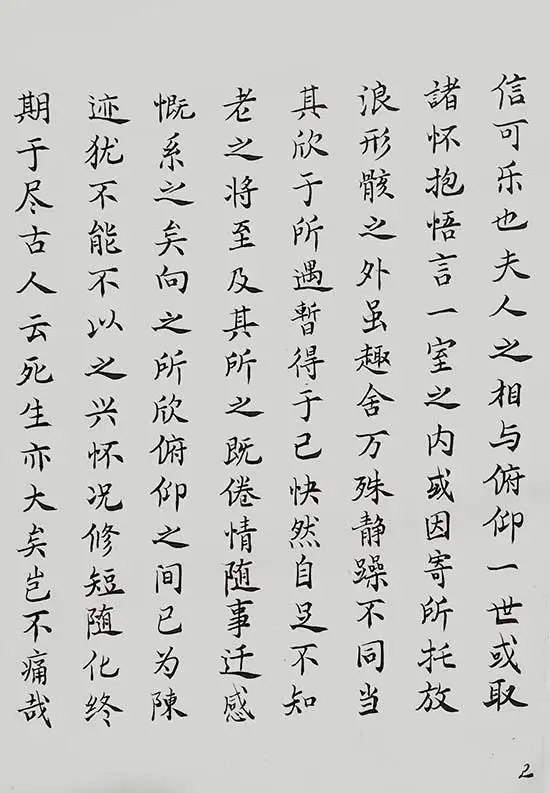 信可乐也夫人之相与俯仰一世或取
諸怀抱悟言一室之内或因寄所托放
浪形骸之外虽趣舍万殊静躁不同当
其欣于所遇暫得于己快然自足不知
老之将至及其所之既倦情随事迁感
慨系之矣向之所欣俯仰之间已为陳
迹犹不能不以之兴怀况修短随化终
期于尽古人云死生亦大矣岂不痛哉
2